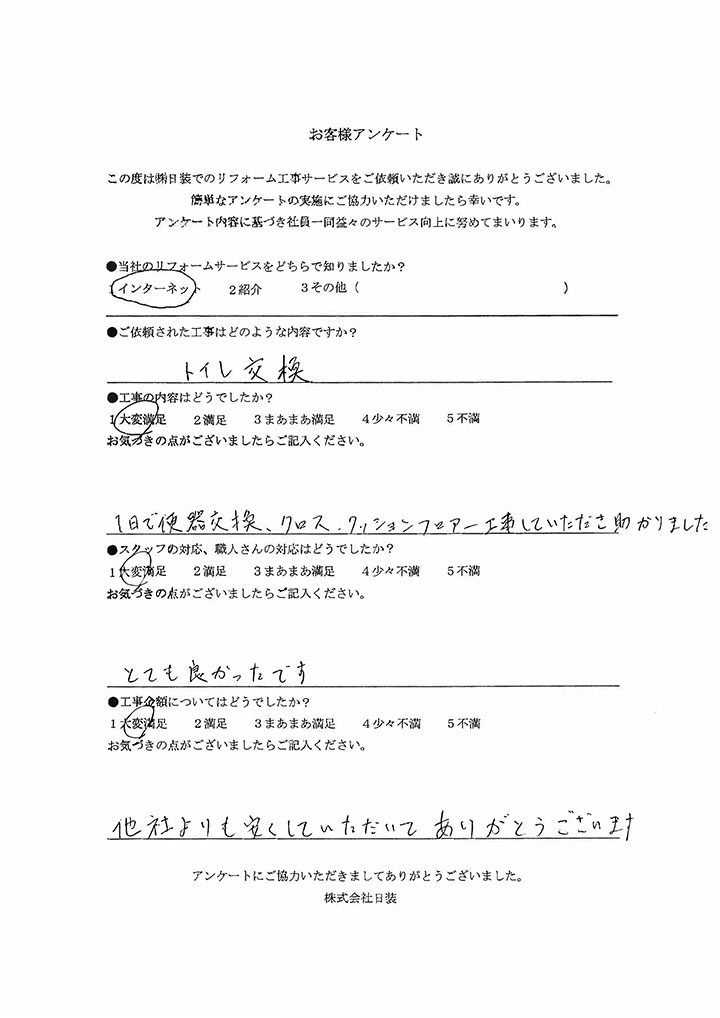 お客様アンケート
この度は㈱日装でのリフォーム工事サービスをご依頼いただき誠にありがとうございました。
簡単なアンケートの実施にご協力いただけましたら幸いです。
アンケート内容に基づき社員一同益々のサービス向上に努めてまいります。
●当社のリフォームサービスをどちらで知りましたか？
1インターネット 2紹介 3その他（ ）
●ご依頼された工事はどのような内容ですか？
トイレ交換
●工事の内容はどうでしたか？
1大変満足 2満足 3まあまあ満足 4少々不満 5不満
お気づきの点がございましたらご記入ください。
1日で便器交換、クロス、クッションフロアー工事していただき助かりました
●スタッフの対応、職人さんの対応はどうでしたか？
1大変満足 2満足 3まあまあ満足 4少々不満 5不満
お気づきの点がございましたらご記入ください。
とても良かったです
●工事金額についてはどうでしたか？
1大変満足 2満足 3まあまあ満足 4少々不満 5不満
お気づきの点がございましたらご記入ください。
他社よりも安くしていただいてありがとうございます
アンケートにご協力いただきましてありがとうございました。
株式会社日装